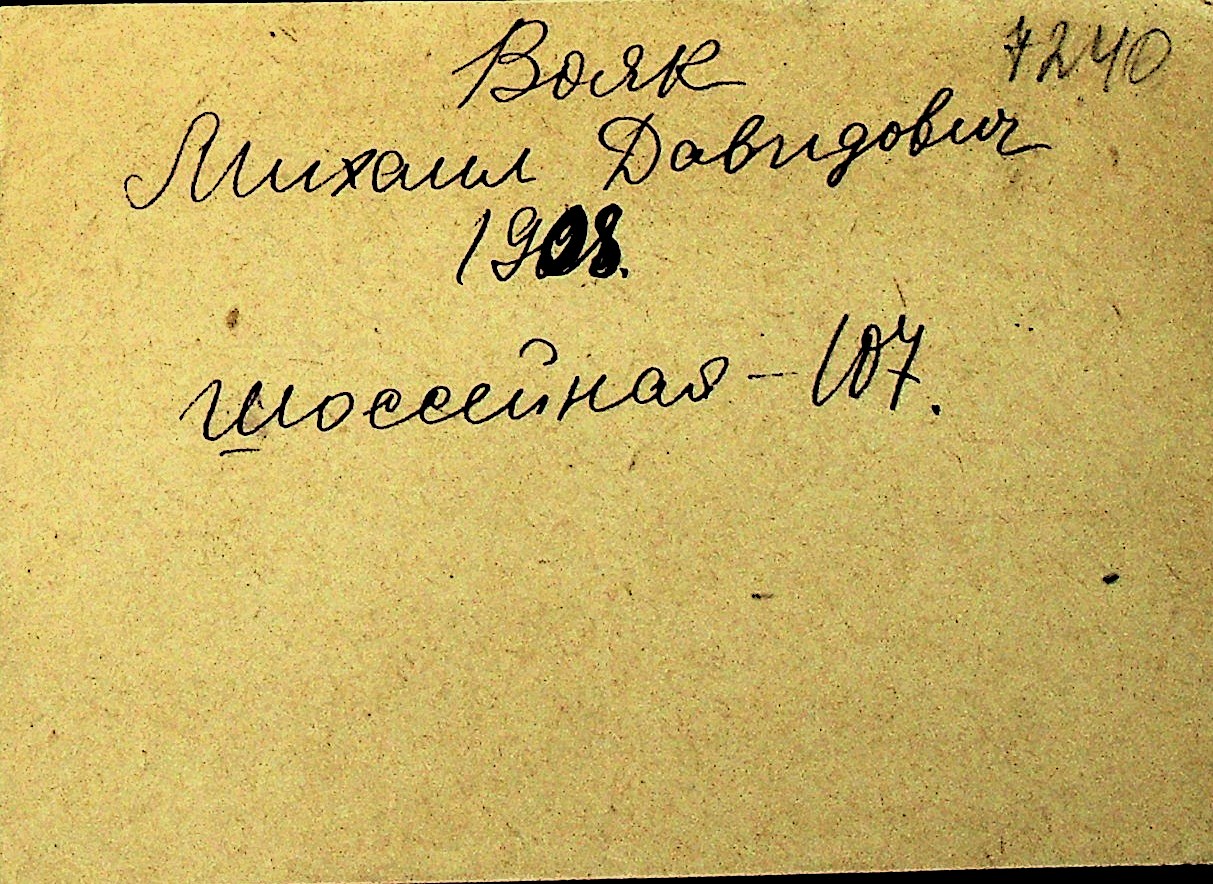 7240
Вояк
Михаил Давидович
1908.
Шоссейная - 107.